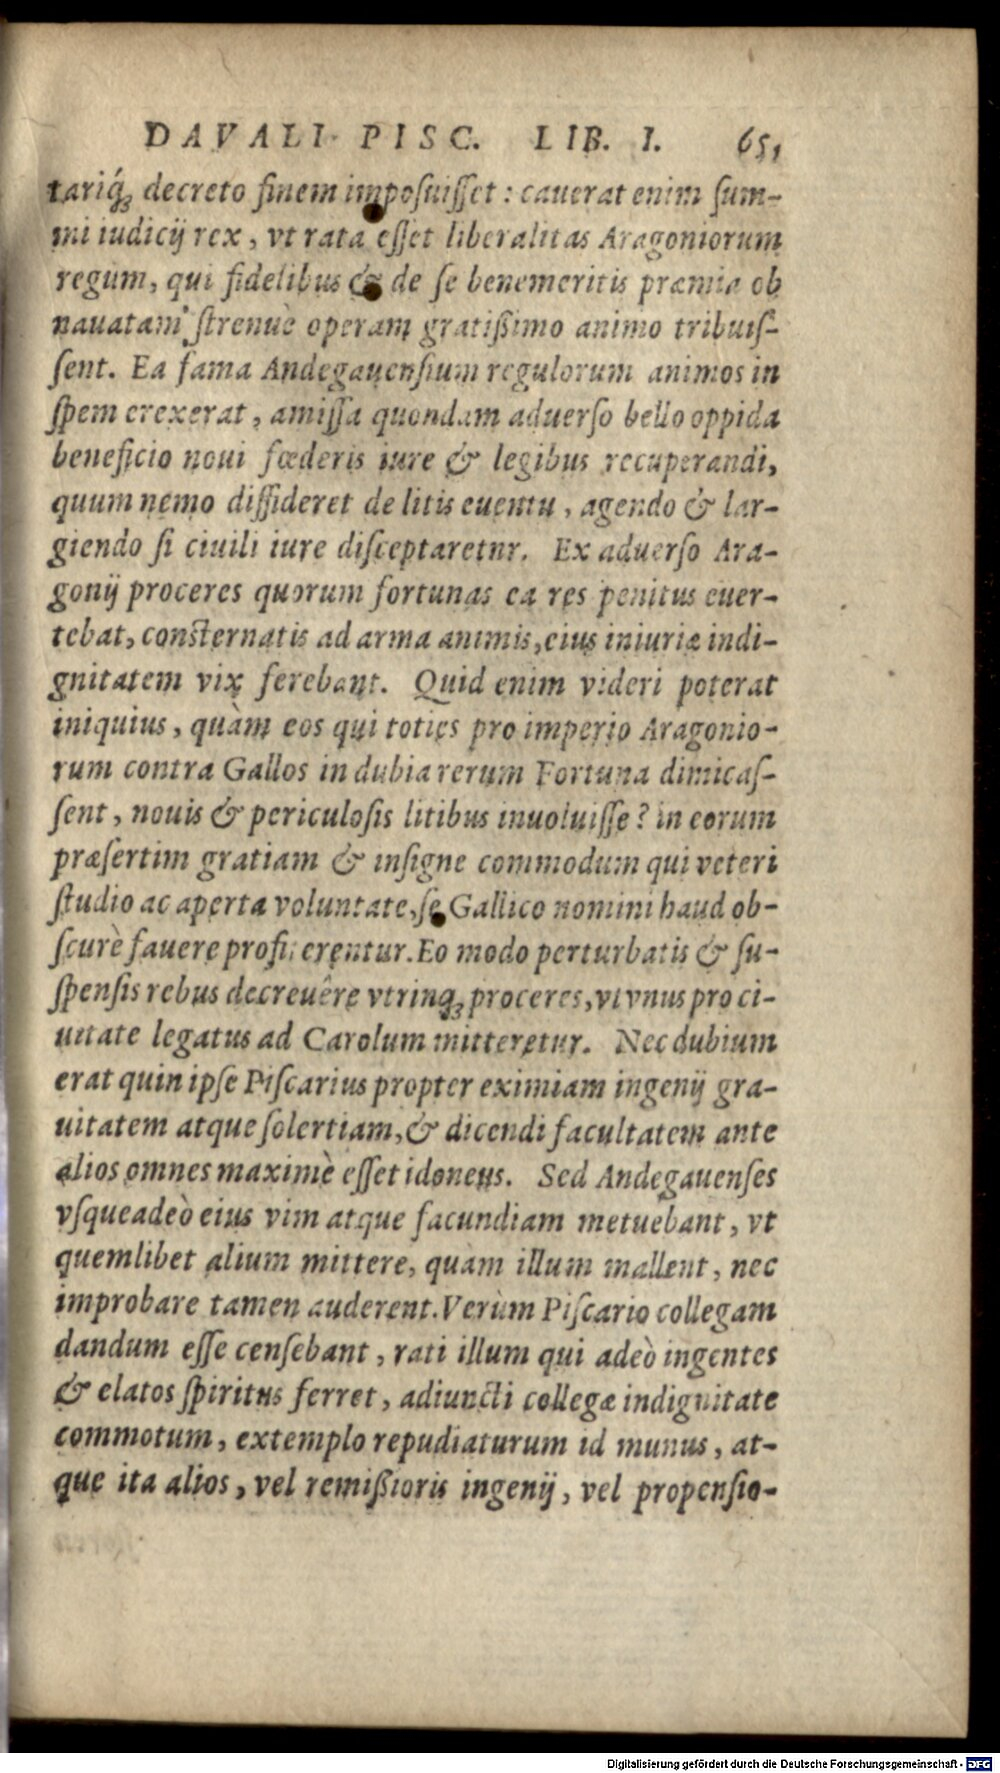 DAVALI PISC. LIB. I. 65,
tariq́ꝫ decreto finem imposuiſſet : cauerat enim ſum-
mi iudicij rex, vt rata eſſet liberalitas Aragoniorum
regum, qui fidelibus & de ſe benemeritis præmia ob
nauatam ſtrenuè operam gratißimo animo tribuiſ-
ſent. Ea fama Andegauenſium regulorum animos in
ſpem erexerat, amiſſa quondam aduerſo bello oppida
beneficio noui fœderis iure & legibus recuperandi,
quum nemo diffideret de litis euentu, agendo & lar-
giendo ſi ciuili iure diſceptaretnr. Ex aduerſo Ara-
gonij proceres quorum fortunas ea res penitus euer-
tebat, conſternatis ad arma animis, eius iniuriæ indi-
gnitatem vix ferebant. Quid enim videri poterat
iniquius, quàm eos qui toties pro imperio Aragonio-
rum contra Gallos in dubia rerum Fortuna dimicaſ-
ſent, nouis & periculoſis litibus inuoluiſſe? in eorum
præſertim gratiam & inſigne commodum qui veteri
ſtudio ac aperta voluntate, ſe Gallico nomini haud ob-
ſcurè fauere profiterentur. Eo modo perturbatis & ſu-
ſpenſis rebus decreuêre vtrinqꝫ proceres, vt vnus pro ci-
uitate legatus ad Carolum mitteretur. Nec dubium
erat quin ipſe Piſcarius propter eximiam ingenij gra-
uitatem atque ſolertiam, & dicendi facultatem ante
alios omnes maximè eſſet idoneus. Sed Andegauenſes
vſqueadeò eius vim atque facundiam metuebant, vt
quemlibet alium mittere, quàm illum mallent, nec
improbare tamen auderent. Verùm Piſcario collegam
dandum eſſe cenſebant, rati illum qui adeò ingentes
& elatos ſpiritus ferret, adiuncti collegæ indignitate
commotum, extemplo repudiaturum id munus, at-
que ita alios, vel remißioris ingenij, vel propenſio-
Digitalisierung gefördert durch die Deutsche Forschungsgemeinschaft - DFG